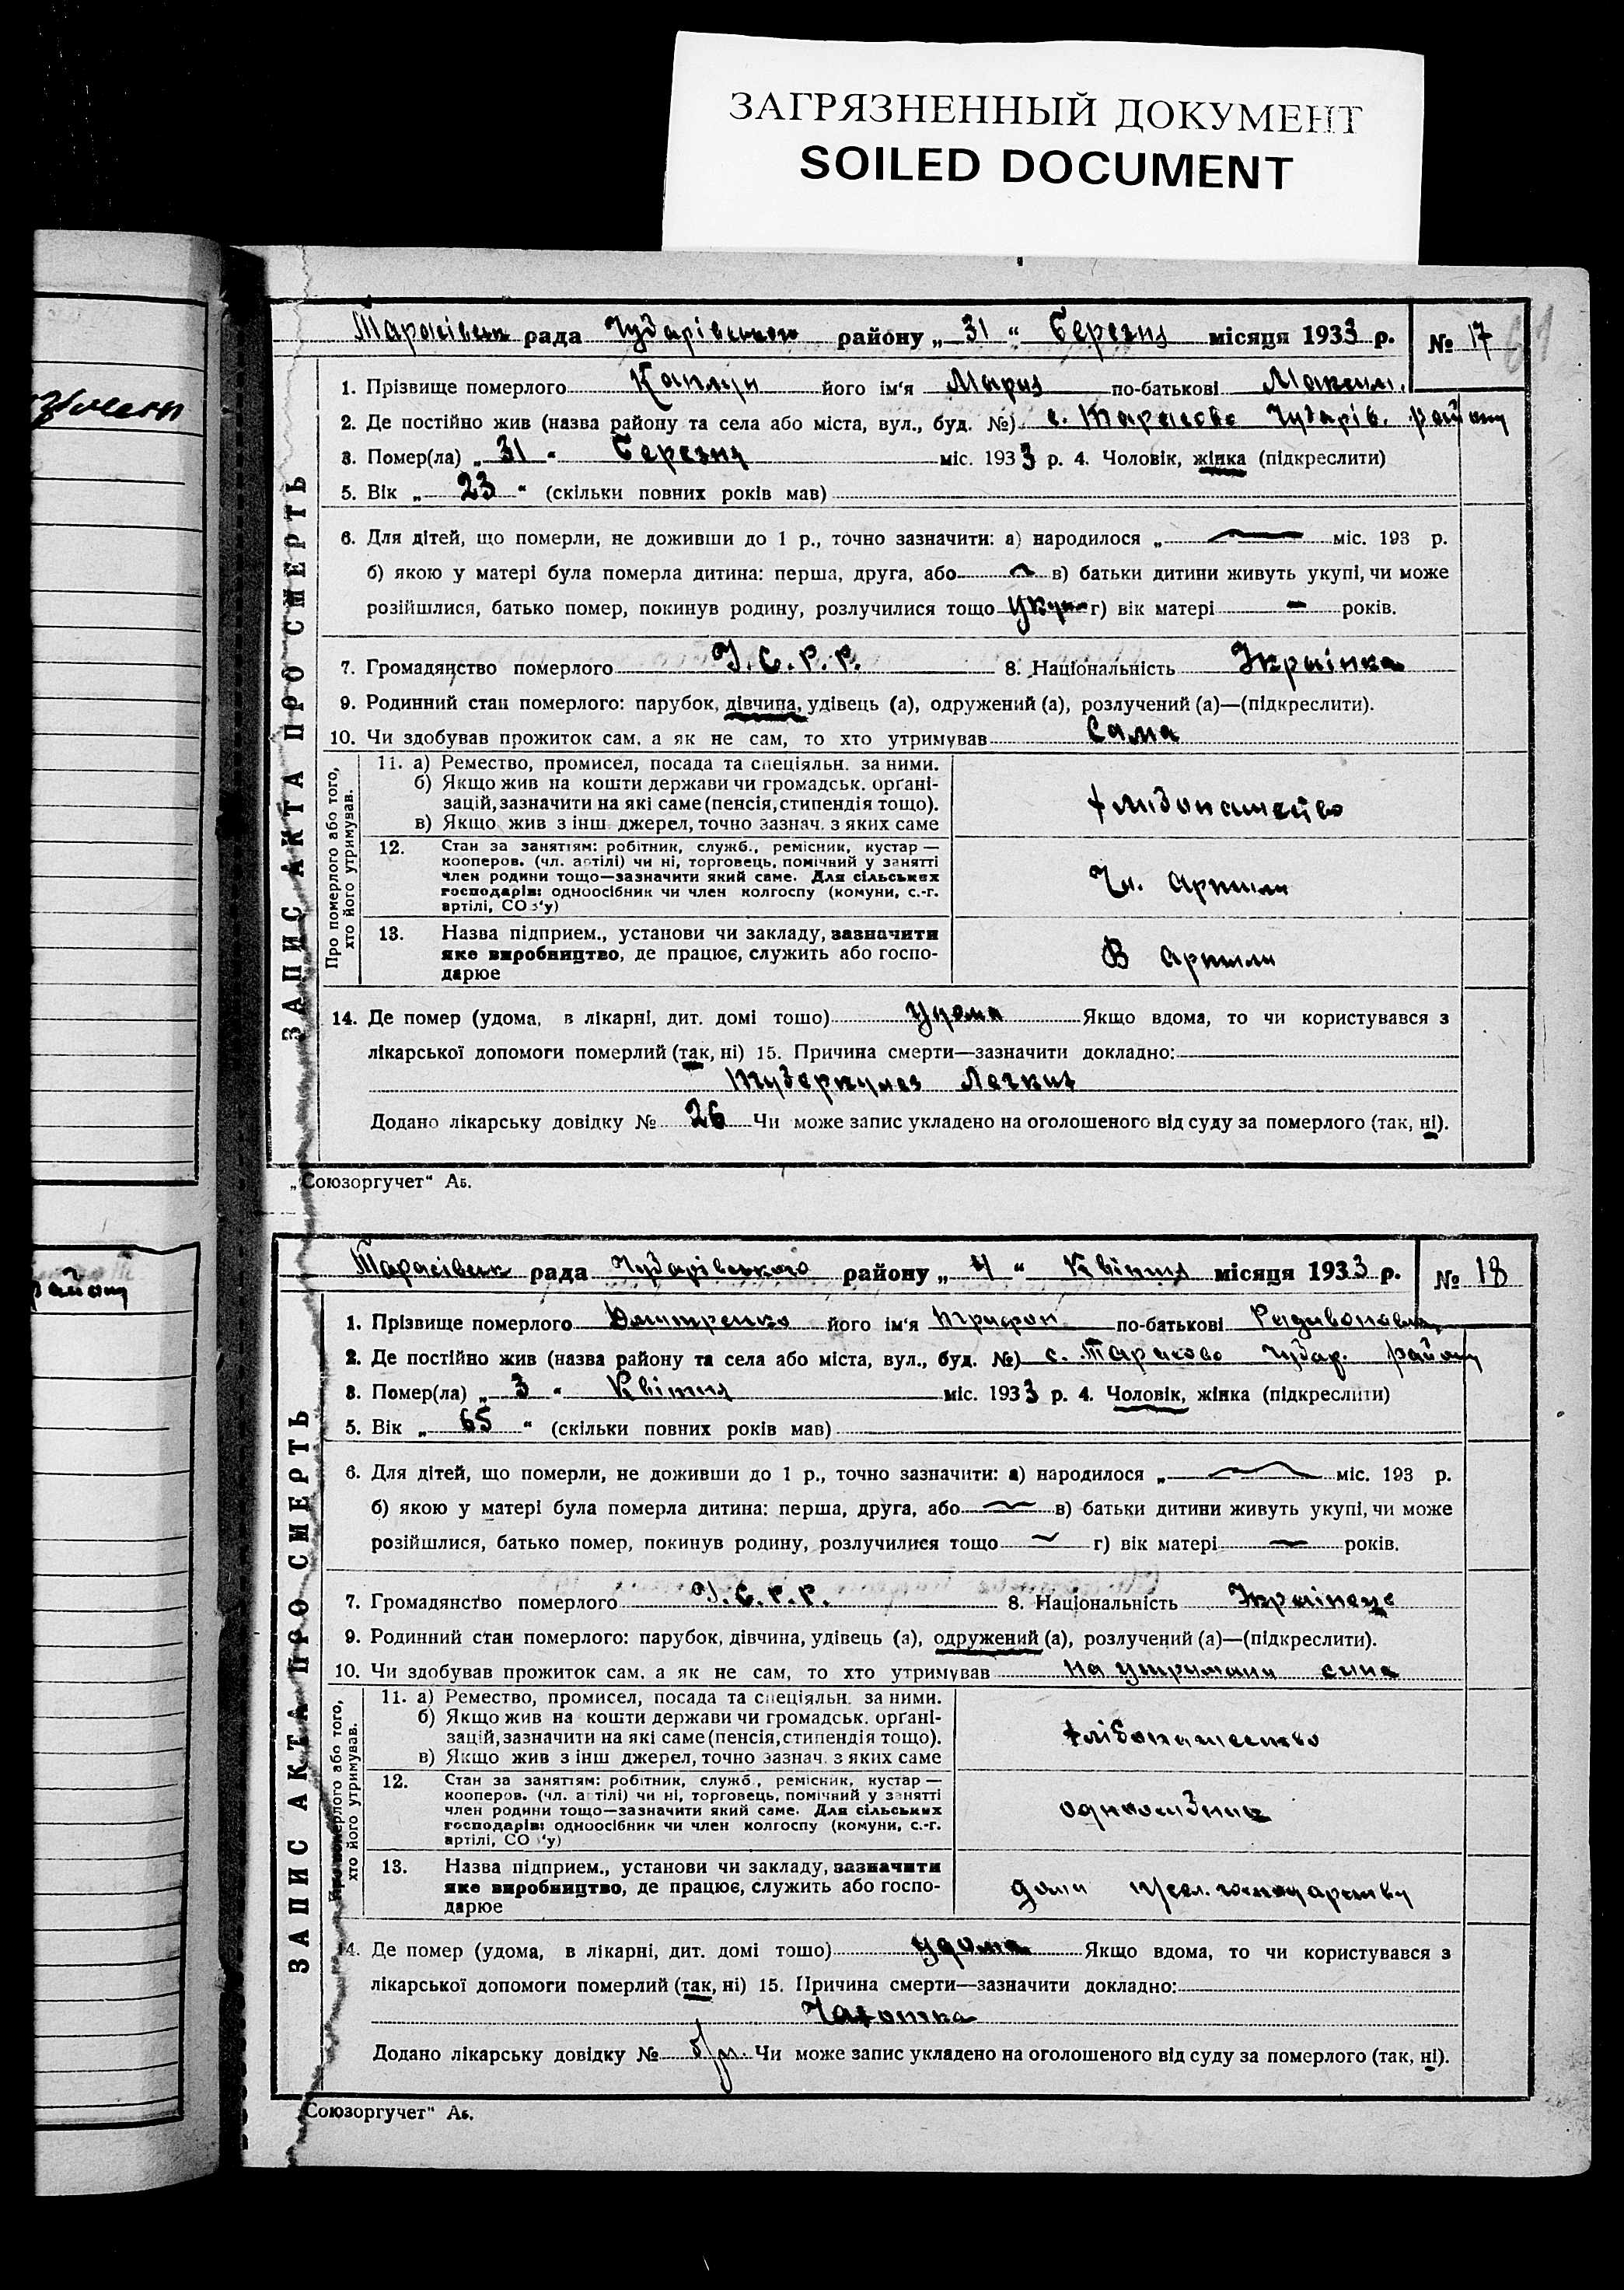 ЗАГРЯЗНЕННЫЙ ДОКУМЕНТ
SOILED DOCUMENT
району
ЗАПИС АКТА ПРО СМЕРТЬ
Тарасівськ рада Чубарівського району „ 31 “ Березня місяця 1933 р. № 17
1. Прізвище померлого Каплун його ім'я Мария по-батькові Максим.
2. Де постійно жив (назва району та села або міста, вул., буд. №) с. Тарасовка Чубарів. району
3. Помер(ла) „ 31 “ Березня міс. 1933 р. 4. Чоловік, жінка (підкреслити)
5. Вік „ 23 “ (скільки повних років мав)
6. Для дітей, що померли, не доживши до 1 р., точно зазначити: а) народилося „ міс. 193 р.
б) якою у матері була померла дитина: перша, друга, або в) батьки дитини живуть укупі, чи може
розійшлися, батько помер, покинув родину, розлучилися тощо г) вік матері – років.
7. Громадянство померлого У.С.Р.Р. 8. Національність Українка
9. Родинний стан померлого: парубок, дівчина, удівець (а), одружений (а), розлучений (а)—(підкреслити).
10. Чи здобував прожиток сам, а як не сам, то хто утримував Сама
Про померлого або того, хто його утримував.
11. а) Ремество, промисел, посада та спеціяльн. за ними.
б) Якщо жив на кошти держави чи громадськ. орґані-
зацій, зазначити на які саме (пенсія, стипендія тощо).
в) Якщо жив з інш джерел, точно зазнач. з яких саме
12. Стан за заняттям: робітник, служб., ремісник, кустар —
кооперов. (чл. артілі) чи ні, торговець, помічний у занятті
член родини тощо—зазначити який саме. Для сільських
господарів: одноосібник чи член колгоспу (комуни, с.-г.
артілі, СОЗ'у)
Чл. артили
13. Назва підприєм., установи чи закладу, зазначити
яке виробництво, де працює, служить або госпо-
дарює
В артили
14. Де помер (удома, в лікарні, дит. домі тощо) Удома Якщо вдома, то чи користувався з
лікарської допомоги померлий (так, ні) 15. Причина смерти—зазначити докладно:
Туберкулез Легких
Додано лікарську довідку № 26 Чи може запис укладено на оголошеного від суду за померлого (так, ні).
„Союзоргучет“ Аб.
ЗАПИС АКТА ПРО СМЕРТЬ
Тарасівськ рада Чубарівського району „ 4 “ Квітня місяця 1933 р. № 18
1. Прізвище померлого Дмитренко його ім'я Трифон по-батькові
2. Де постійно жив (назва району та села або міста, вул., буд. №) с. Тарасово Чубар. району
3. Помер(ла) „ 3 “ Квітня міс. 1933 р. 4. Чоловік, жінка (підкреслити)
5. Вік „ 65 “ (скільки повних років мав)
6. Для дітей, що померли, не доживши до 1 р., точно зазначити: а) народилося „ міс. 193 р.
б) якою у матері була померла дитина: перша, друга, або в) батьки дитини живуть укупі, чи може
розійшлися, батько помер, покинув родину, розлучилися тощо г) вік матері років.
7. Громадянство померлого У.С.Р.Р. 8. Національність Українець
9. Родинний стан померлого: парубок, дівчина, удівець (а), одружений (а), розлучений (а)—(підкреслити).
10. Чи здобував прожиток сам, а як не сам, то хто утримував на утримани сина
Про померлого або того, хто його утримував.
11. а) Ремество, промисел, посада та спеціяльн. за ними.
б) Якщо жив на кошти держави чи громадськ. орґані-
зацій, зазначити на які саме (пенсія, стипендія тощо).
в) Якщо жив з інш джерел, точно зазнач. з яких саме
хлібопашество
12. Стан за заняттям: робітник, служб., ремісник, кустар —
кооперов. (чл. артілі) чи ні, торговець, помічний у занятті
член родини тощо—зазначити який саме. Для сільських
господарів: одноосібник чи член колгоспу (комуни, с.-г.
артілі, СОЗ'у)
13. Назва підприєм., установи чи закладу, зазначити
яке виробництво, де працює, служить або госпо-
дарює
14. Де помер (удома, в лікарні, дит. домі тощо) удома Якщо вдома, то чи користувався з
лікарської допомоги померлий (так, ні) 15. Причина смерти—зазначити докладно:
Чахотка
Додано лікарську довідку № б/н. Чи може запис укладено на оголошеного від суду за померлого (так, ні).
„Союзоргучет“ Аб.